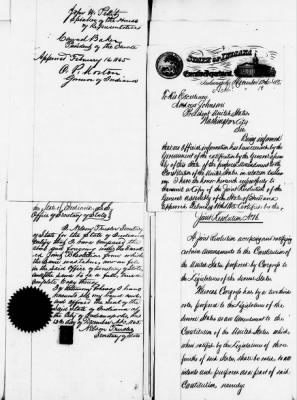 John W. Pettit
Speaker of the House
of Representatives
Conrad Baker
President of the Senate
Approved February 16 1865
O. P. Morton
Governor of Indiana
the State of Indiana
Office of Secretary of State
I Nelson Trusler Secretary
of State for the State of Indiana
certify that I have compared the
above and foregoing with the
Joint Resolution from which
the same was taken
in the said Office of Secretary of State,
and the same is a full, true and
complete copy thereof
In testimony whereof I have
hereunto set my hand
and affixed the seal of the
State of Indiana at
the City of Indianapolis this
Nelson Trusler
Secretary of State
STATE OF INDIANA
Executive Department
Indianapolis
To His Excellency
Andrew Johnson
President United States
Washington City
Sir
Being informed
that no official information has been received by the
Government of the ratification by the General
of this State of the proposed amendment to the
Constitution of the United States in relation to
I have the honor herewith
to transmit a Copy of the Joint Resolution of the
General assembly of the State of Indiana
approved
Joint Resolution
A Joint Resolution accepting and ratifying
certain amendments to the Constitution of
the United States proposed by Congress to
the Legislatures of the several States
Whereas Congress has by a two thirds
vote, proposed to the Legislatures of the
several States as an amendment to the
Constitution of the United States which
when ratified by the Legislatures of three
fourths of said States, shall be valid to all
intents and purposes as a part of said
Constitution, namely